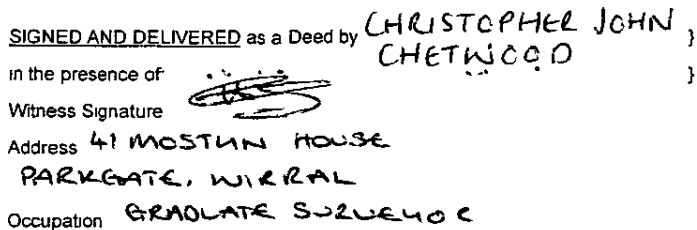 SIGNED AND DELIVERED as a Deed by CHRISTOPHER JOHN }
CHETWOOD
in the presence of }
Witness Signature
Address 41 MOSTYN HOUSE
PARKGATE, WIRRAL
Occupation GRADUATE SURVEYOR